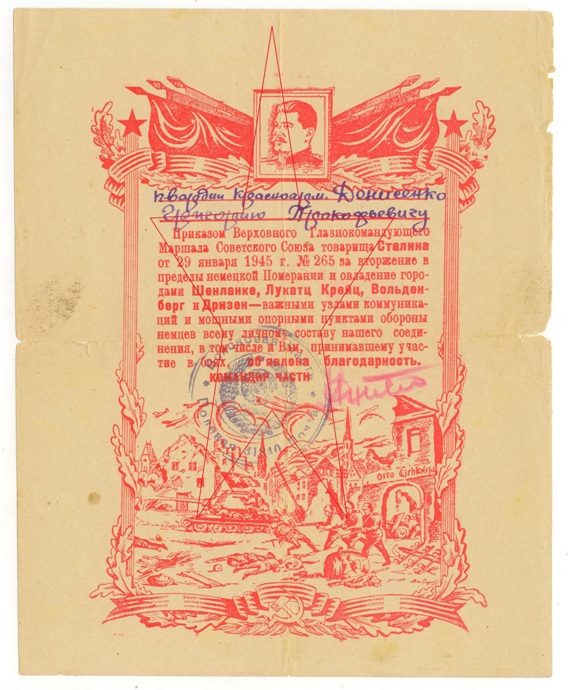 гвардии красноарм. Денисенко
Григорию Прокофьевичу
Приказом Верховного Главнокомандующего
Маршала Советского Союза товарища Сталина
от 29 января 1945 г. № 265 за вторжение в
пределы немецкой Померании и овладение горо-
дами Шенланке, Лукатц Крейц, Вольден-
берг и Дризен—важными узлами коммуника-
ций и мощными опорными пунктами обороны
немцев всему личному составу нашего соеди-
нения, в том числе и Вам, принимавшему учас-
тие в боях, объявлена благодарность.
КОМАНДИР ЧАСТИ
Полевая почта
Otto